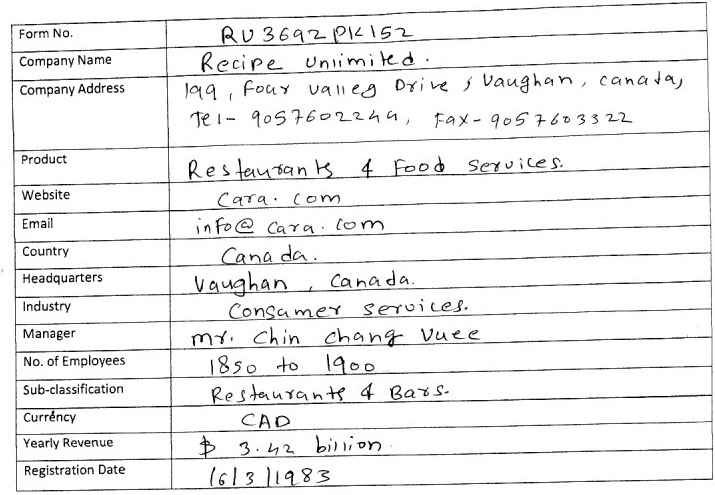 Form No. RU3692PK152
Company Name Recipe Unlimited.
Company Address 199, Four valleg Drive, Vaughan, Canada,
Tel- 9057602244, Fax- 9057603322
Product Restaurants & Food Services.
Website Cara.com
Email info@cara.com
Country Canada.
Headquarters Vaughan, Canada.
Industry Consamer services.
Manager mr. Chin chang Vuee
No. of Employees 1850 to 1900
Sub-classification Restaurants & Bars.
Currency CAD
Yearly Revenue $ 3.42 billion.
Registration Date 16/3/1983